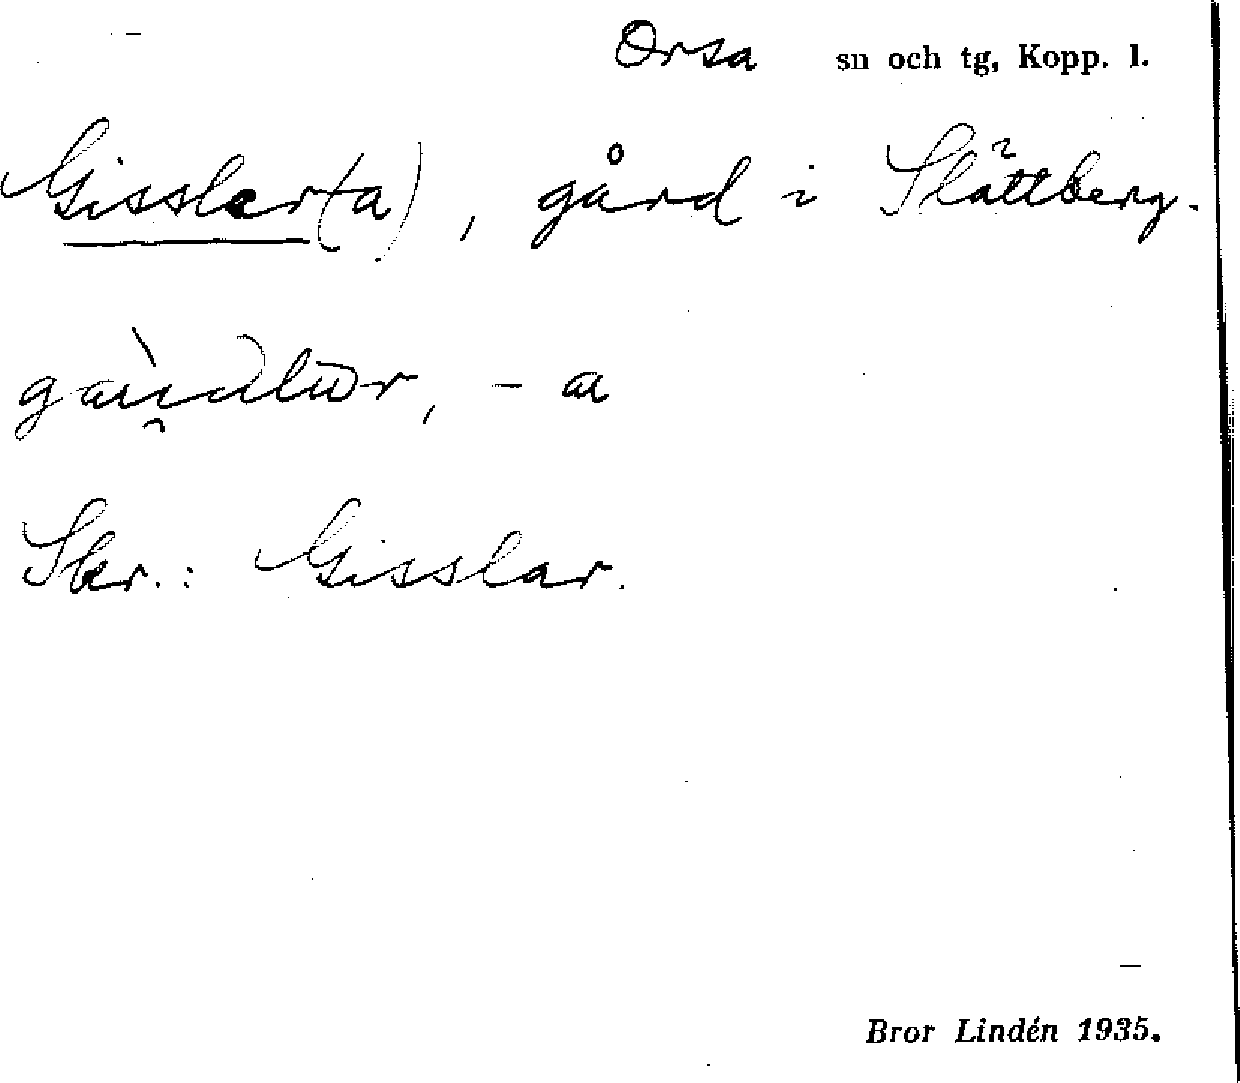 Orsa sn och tg, Kopp. l.
Gissler(ta), gård i Slättberg.
-a
Skr.: Gisslar.
Bror Lindén 1935.